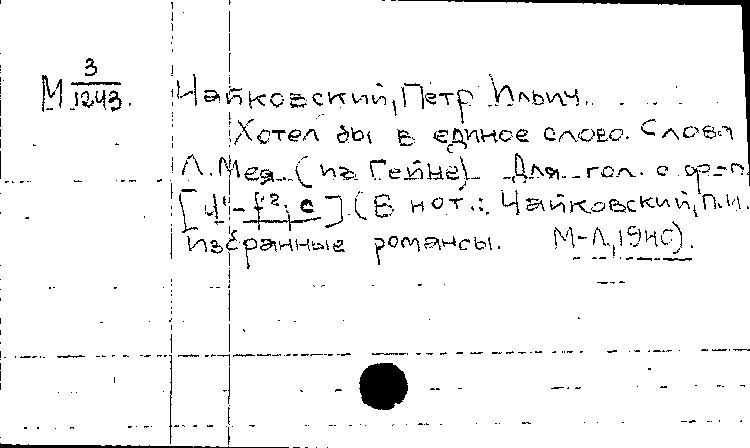 М 3/1243. Чайковский, Петр Ильич.
Хотел бы в единое слово. Слова
Л. Мея (из Гейне) Для гол. с ф-п.
[d¹-f²; c] (В нот.: Чайковский, П.И.
избранные романсы. М-Л, 1940).